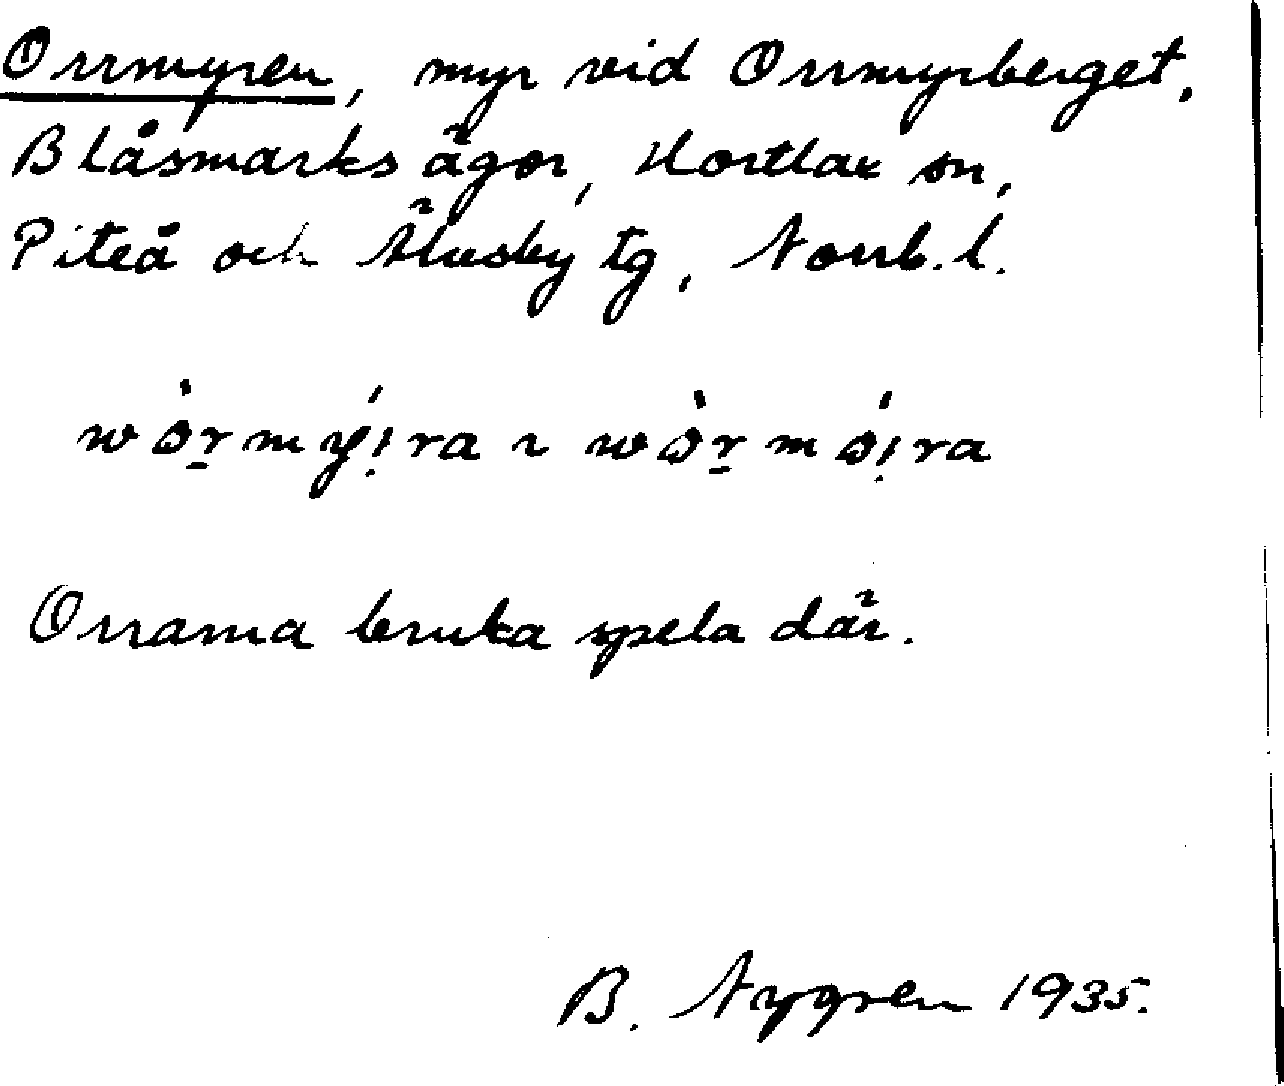 Orrmyren, myr vid Orrmyrberget,
Blåsmarks ägor, Hortlax sn,
Piteå och Älvsby tg, Norrb. l.
wòr̠mýi̩ra ~ wòr̠mói̩ra
Orrarna bruka spela där.
B. Nygren 1935.